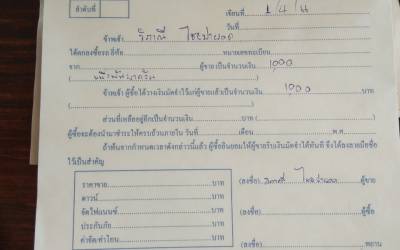 ลำดับที่
เขียนที่ 1/4/
วันที่
ข้าพเจ้า วิภาณี
ได้ตกลงซื้อรถ ยี่ห้อ หมายเลขทะเบียน
จาก ผู้ขาย เป็นจำนวนเงิน 1,000
( )
ข้าพเจ้า ผู้ซื้อได้วางเงินมัดจำไว้แก่ผู้ขายแล้วเป็นจำนวนเงิน 1,000 บาท
( )
ส่วนที่เหลืออยู่อีกเป็นจำนวนเงิน บาท ( )
ผู้ซื้อจะต้องนำมาชำระให้ครบถ้วนภายใน วันที่ เดือน พ.ศ.
ถ้าพ้นจากกำหนดเวลาดังกล่าวนี้แล้ว ผู้ซื้อยินยอมให้ผู้ขายริบเงินมัดจำได้ทันที จึงได้ลงลายมือชื่อ
ไว้เป็นสำคัญ
ราคาขาย บาท
ดาวน์ บาท
จัดไฟแนนซ์ บาท
ประกันภัย บาท
ค่าจัด/ค่าโอน บาท
(ลงชื่อ) ผู้ขาย
(ลงชื่อ) ผู้ซื้อ
(ลงชื่อ) พยาน